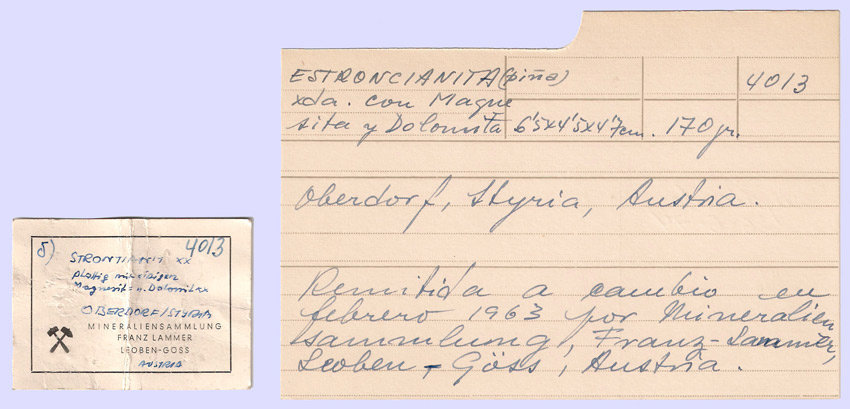 5) 4013
STRONTIANIT xx
plattig mit
Magnesit- u. Dolomit xx
OBERDORF/STYRIA
MINERALIENSAMMLUNG
FRANZ LAMMER
LEOBEN-GÖSS
AUSTRIA
ESTRONCIANITA (piña) 4013
xda. con Magne
sita y Dolomita 6'5x4'5x4'7cm. 170gr.
Oberdorf, Styria, Austria.
Remitida a cambio en
febrero 1963 por Mineralien
sammlung, Franz-Lammer,
Leoben-Göss, Austria.